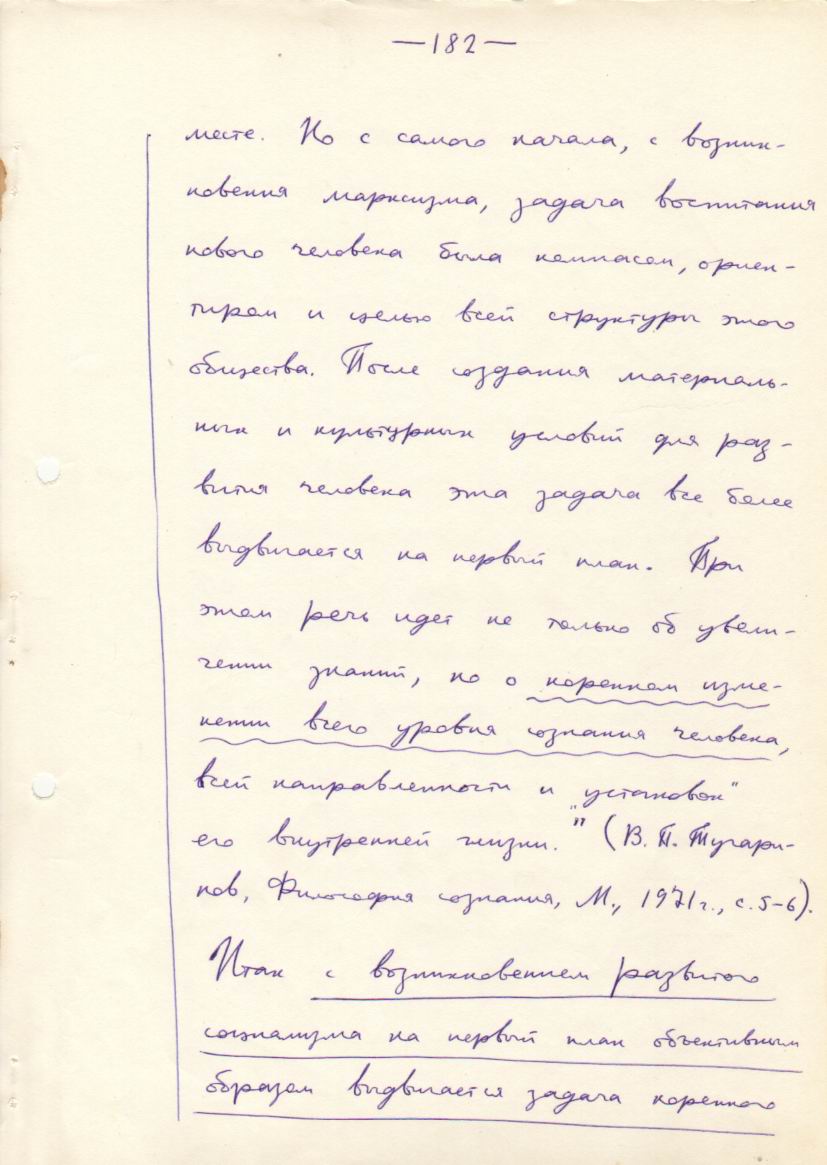 —182—
месте. Но с самого начала, с возник-
новения марксизма, задача воспитания
нового человека была компасом, ориен-
тиром и целью всей структуры этого
общества. После создания материаль-
ных и культурных условий для раз-
вития человека эта задача все более
выдвигается на первый план. При
этом речь идет не только об увели-
чении знаний, но о коренном изме-
нении всего уровня сознания человека,
всей направленности и „установок"
его внутренней жизни." (В. П. Тугари-
нов, Философия сознания, М., 1971г., с.5-6).
Итак с возникновением развитого
социализма на первый план объективным
образом выдвигается задача коренного